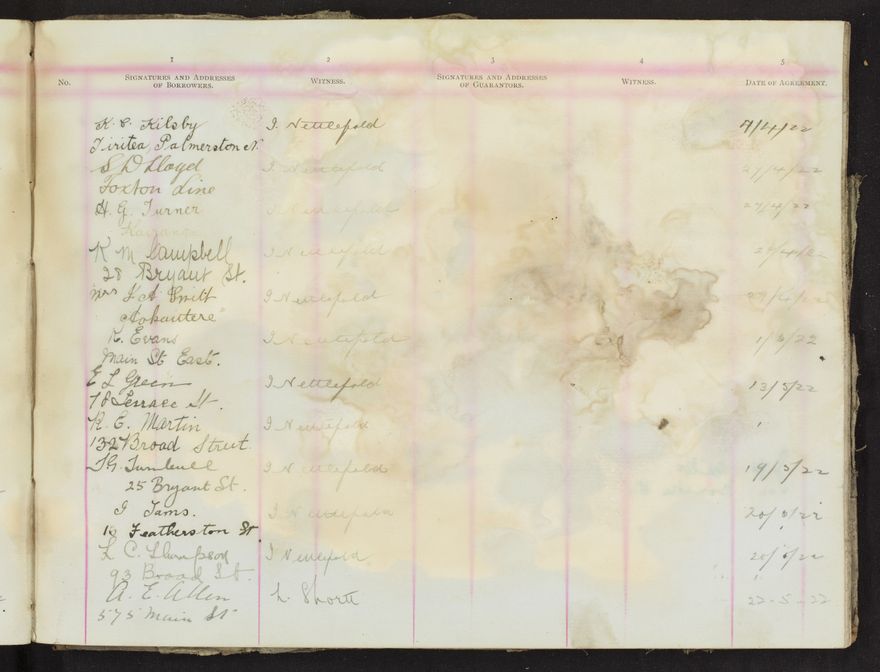 1 2 3 4 5
No. SIGNATURES AND ADDRESSES OF BORROWERS. WITNESS. SIGNATURES AND ADDRESSES OF GUARANTORS. WITNESS. DATE OF AGREEMENT.
K. C. Kilsby I. Nettlefold 7/4/22
Tiritea, Palmerston N.
S D Lloyd I Nettlefold 27/4/22
Foxton Line
H. G. Turner I Nettlefold 27/4/22
K M Campbell I Nettlefold
28 Bryant St.
Mrs J A Smith I Nettlefold
Aokautere
K. Evans I Nettlefold 1/5/22
Main St East.
E L Green I Nettlefold 13/5/22
78 Terrace St.
R. E. Martin I Nettlefold
132 Broad Street.
Turnbull I Nettlefold 19/5/22
25 Bryant St.
I Tams. I Nettlefold 20/5/22
Featherston St.
L C. Thompson I Nettlefold 20/5/22
93 Broad St. " "
A. E. Allen L. Shortt 22-5-22
575 Main St